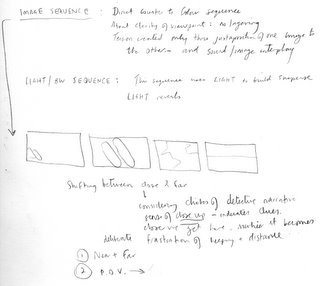 IMAGE SEQUENCE : Direct counter to Colour sequence
About clarity of viewpoint : no layering
Tension created only thru juxtaposition of one image to
the other and sound/image interplay
LIGHT/BW SEQUENCE : The sequence uses LIGHT to build suspense
LIGHT reveals.
Shifting between close & far
considering clichés of detective narrative
sense of close up - indicates clues.
close up get here, it becomes
deliberate frustration of keeping a distance
① Near + Far
② P.O.V. →